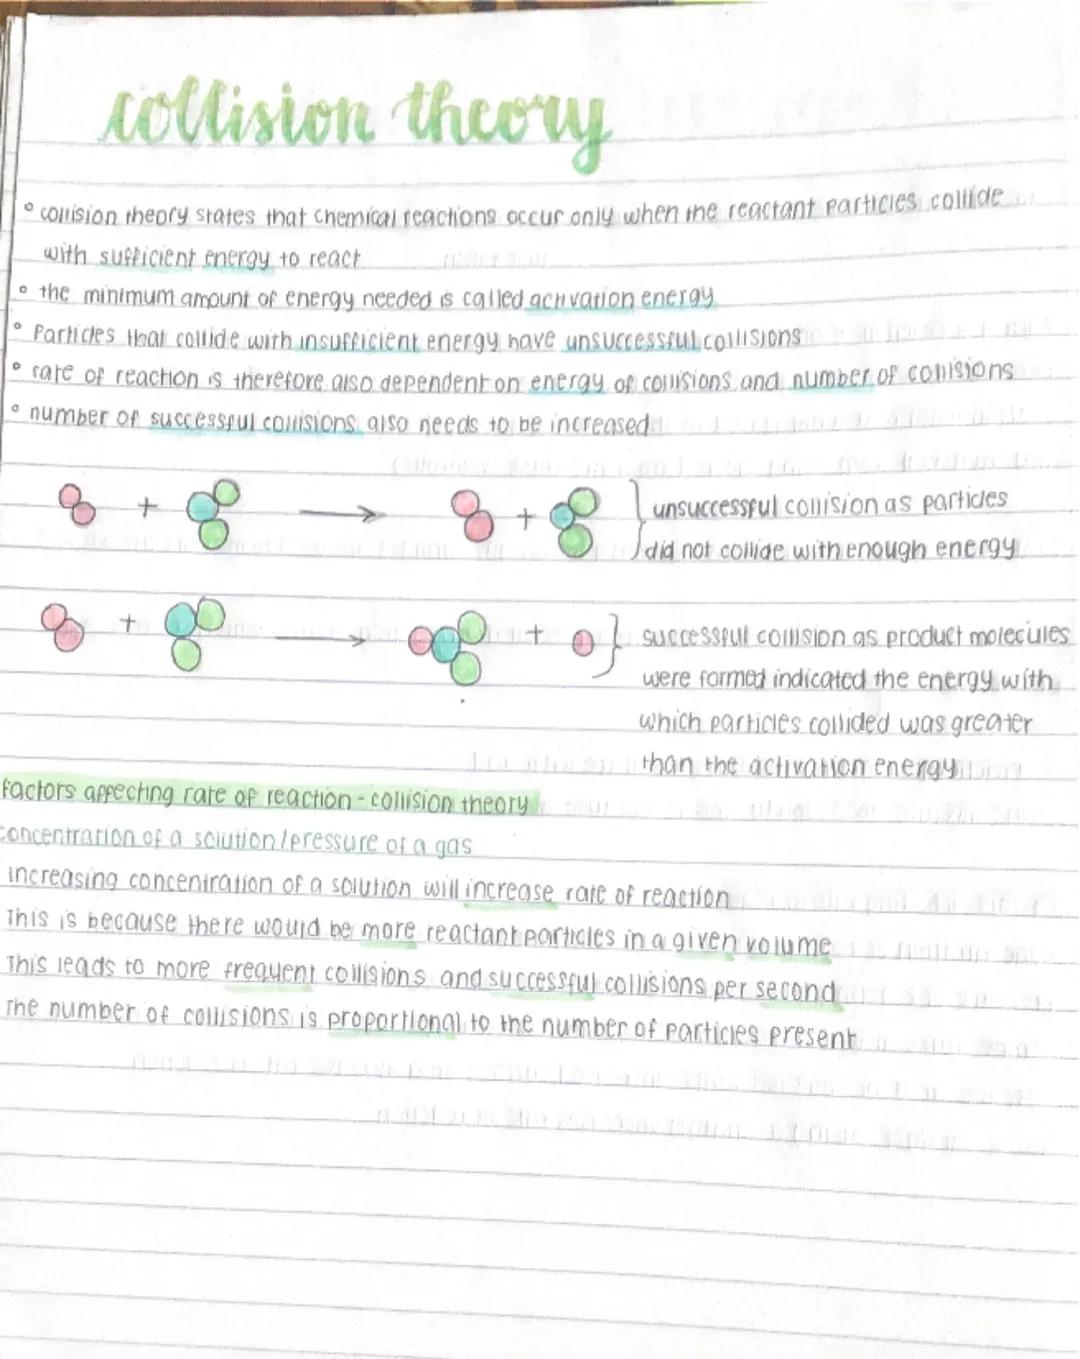 collision theory
° collision theory states that chemical reactions occur only when the reactant particles collide
with sufficient energy to react
° the minimum amount of energy needed is called activation energy
° Particles that collide with insufficient energy have unsuccessful collisions
° rate of reaction is therefore also dependent on energy of collisions and number of collisions
° number of successful collisions also needs to be increased
+ → + } unsuccessful collision as particles
did not collide with enough energy
+ → + } successful collision as product molecules
were formed indicated the energy with
which particles collided was greater
than the activation energy
Factors affecting rate of reaction - collision theory
concentration of a solution / pressure of a gas
increasing concentration of a solution will increase rate of reaction
This is because there would be more reactant particles in a given volume
This leads to more frequent collisions and successful collisions per second
The number of collisions is proportional to the number of particles present